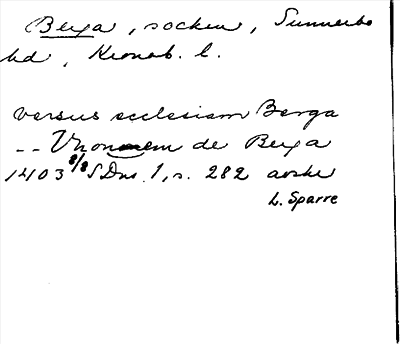 Berga, socken, Sunnerbo
hd, Kronob. l.
versus ecclesiam Berga
-- de Berga
1403 8/8 SDns. 1, s. 282 avskr
L. Sparre